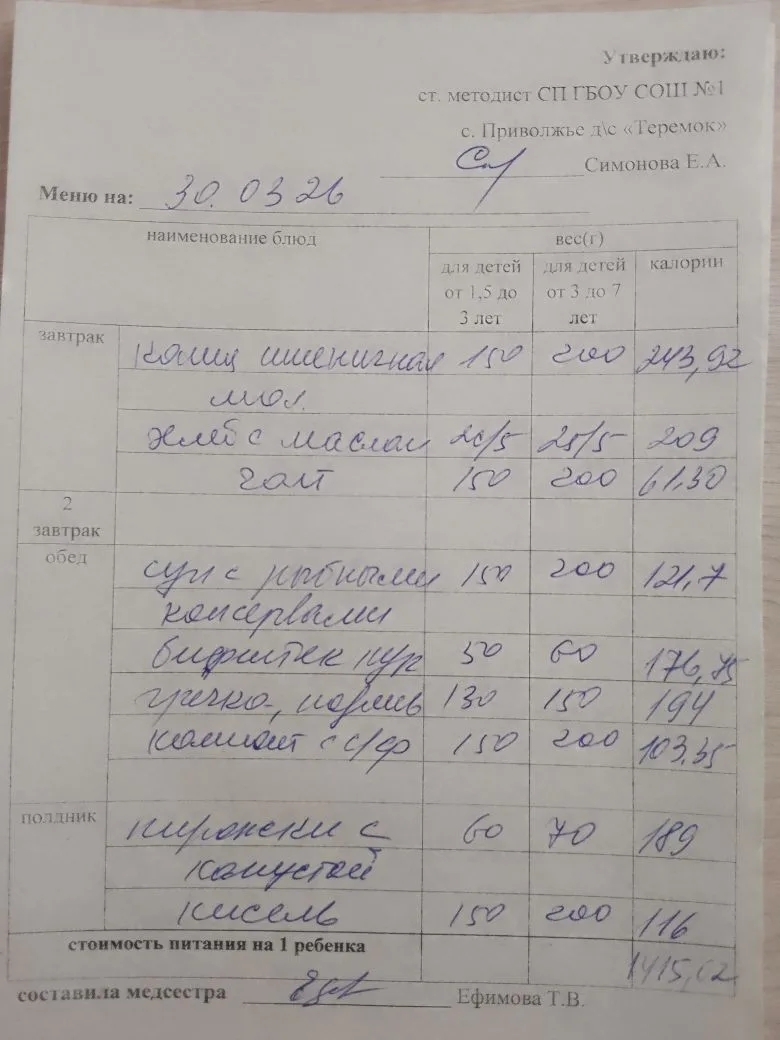 Утверждаю:
ст. методист СП ГБОУ СОШ №1
с. Приволжье д\с «Теремок»
Симонова Е.А.
Меню на: 30.03 26
наименование блюд вес(г)
для детей от 1,5 до 3 лет для детей от 3 до 7 лет калории
завтрак каша пшеничная 150 200 243,92
мол.
хлеб с маслом 20/5 25/5 209
чай 150 200 61.30
2 завтрак
обед суп с рыбными 150 200 121,7
консервами
бифштек кур 50 60 176,75
гречка, подлив 130 150 194
компот с с/ф 150 200 103.35
полдник пирожки с 60 70 189
капустой
кисель 150 200 116
стоимость питания на 1 ребенка 1415,02
составила медсестра Ефимова Т.В.